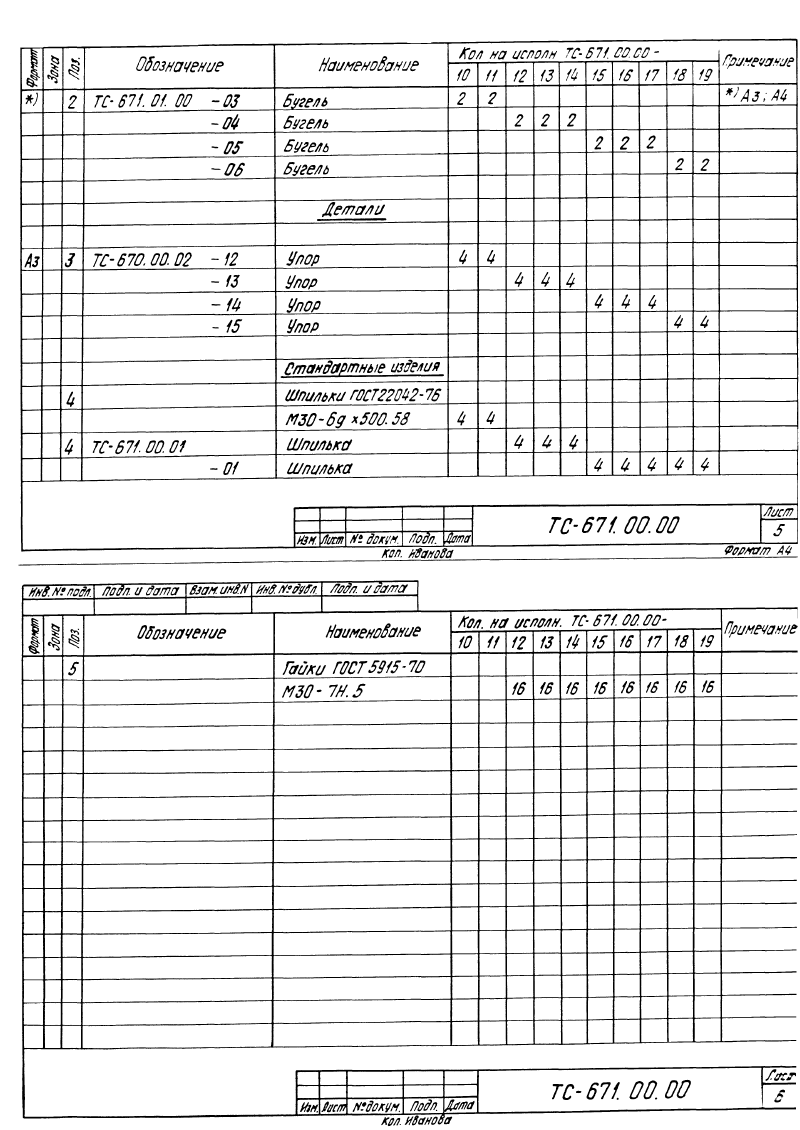 Формат Зона Поз. Обозначение Наименование Кол на исполн ТС-671.00.00 - Примечание
10 11 12 13 14 15 16 17 18 19
*) 2 ТС-671.01.00 -03 Бугель 2 2 *) А3; А4
-04 Бугель 2 2 2
-05 Бугель 2 2 2
-06 Бугель 2 2
Детали
А3 3 ТС-670.00.02 -12 Упор 4 4
-13 Упор 4 4 4
-14 Упор 4 4 4
-15 Упор 4 4
Стандартные изделия
4 Шпильки ГОСТ22042-76
М30-6g ×500.58 4 4
4 ТС-671.00.01 Шпилька 4 4 4
-01 Шпилька 4 4 4 4 4
ТС-671.00.00 Лист
5
Изм. Лист № докум. Подп. Дата
Коп. Иванова Формат А4
Инв. № подл. Подп. и дата Взам. инв. N Инв. № дубл. Подп. и дата
Формат Зона Поз. Обозначение Наименование Кол. на исполн. ТС-671.00.00- Примечание
10 11 12 13 14 15 16 17 18 19
5 Гайки ГОСТ 5915-70
М30-7Н.5 16 16 16 16 16 16 16 16
ТС-671.00.00 Лист
6
Изм. Лист № докум. Подп. Дата
Коп. Иванова